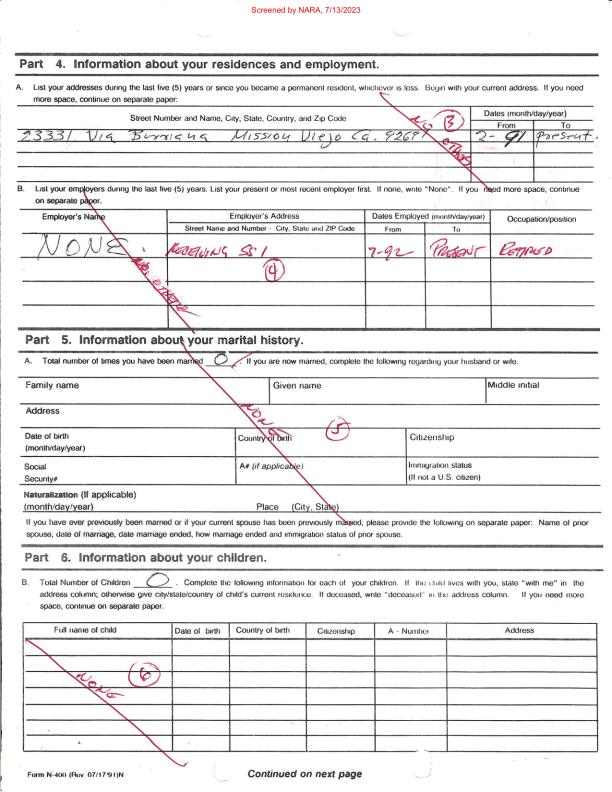 Screened by NARA, 7/13/2023
Part 4. Information about your residences and employment.
A. List your addresses during the last five (5) years or since you became a permanent resident, whichever is less. Begin with your current address. If you need
more space, continue on separate paper:
Street Number and Name, City, State, Country, and Zip Code
Dates (month/day/year)
From To
NO OTHERS
3
23331 Via Burriana Mission Viejo Ca. 9269 2-91 present.
B. List your employers during the last five (5) years. List your present or most recent employer first. If none, write "None". If you need more space, continue
on separate paper.
Employer's Name Employer's Address Dates Employed (month/day/year) Occupation/position
Street Name and Number - City, State and ZIP Code From To
NONE. RECEIVING SSI 7-92 PRESENT RETIRED
4
NO OTHERS
Part 5. Information about your marital history.
A. Total number of times you have been married 0 . If you are now married, complete the following regarding your husband or wife.
Family name Given name Middle initial
Address
NONE
5
Date of birth
(month/day/year) Country of birth Citizenship
Social
Security# A# (if applicable) Immigration status
(If not a U.S. citizen)
Naturalization (If applicable)
(month/day/year) Place (City, State)
If you have ever previously been married or if your current spouse has been previously married, please provide the following on separate paper: Name of prior
spouse, date of marriage, date marriage ended, how marriage ended and immigration status of prior spouse.
Part 6. Information about your children.
B. Total Number of Children 0 . Complete the following information for each of your children. If the child lives with you, state "with me" in the
address column; otherwise give city/state/country of child's current residence. If deceased, write "deceased" in the address column. If you need more
space, continue on separate paper.
Full name of child Date of birth Country of birth Citizenship A - Number Address
NONE
6
Form N-400 (Rev. 07/17/91)N Continued on next page